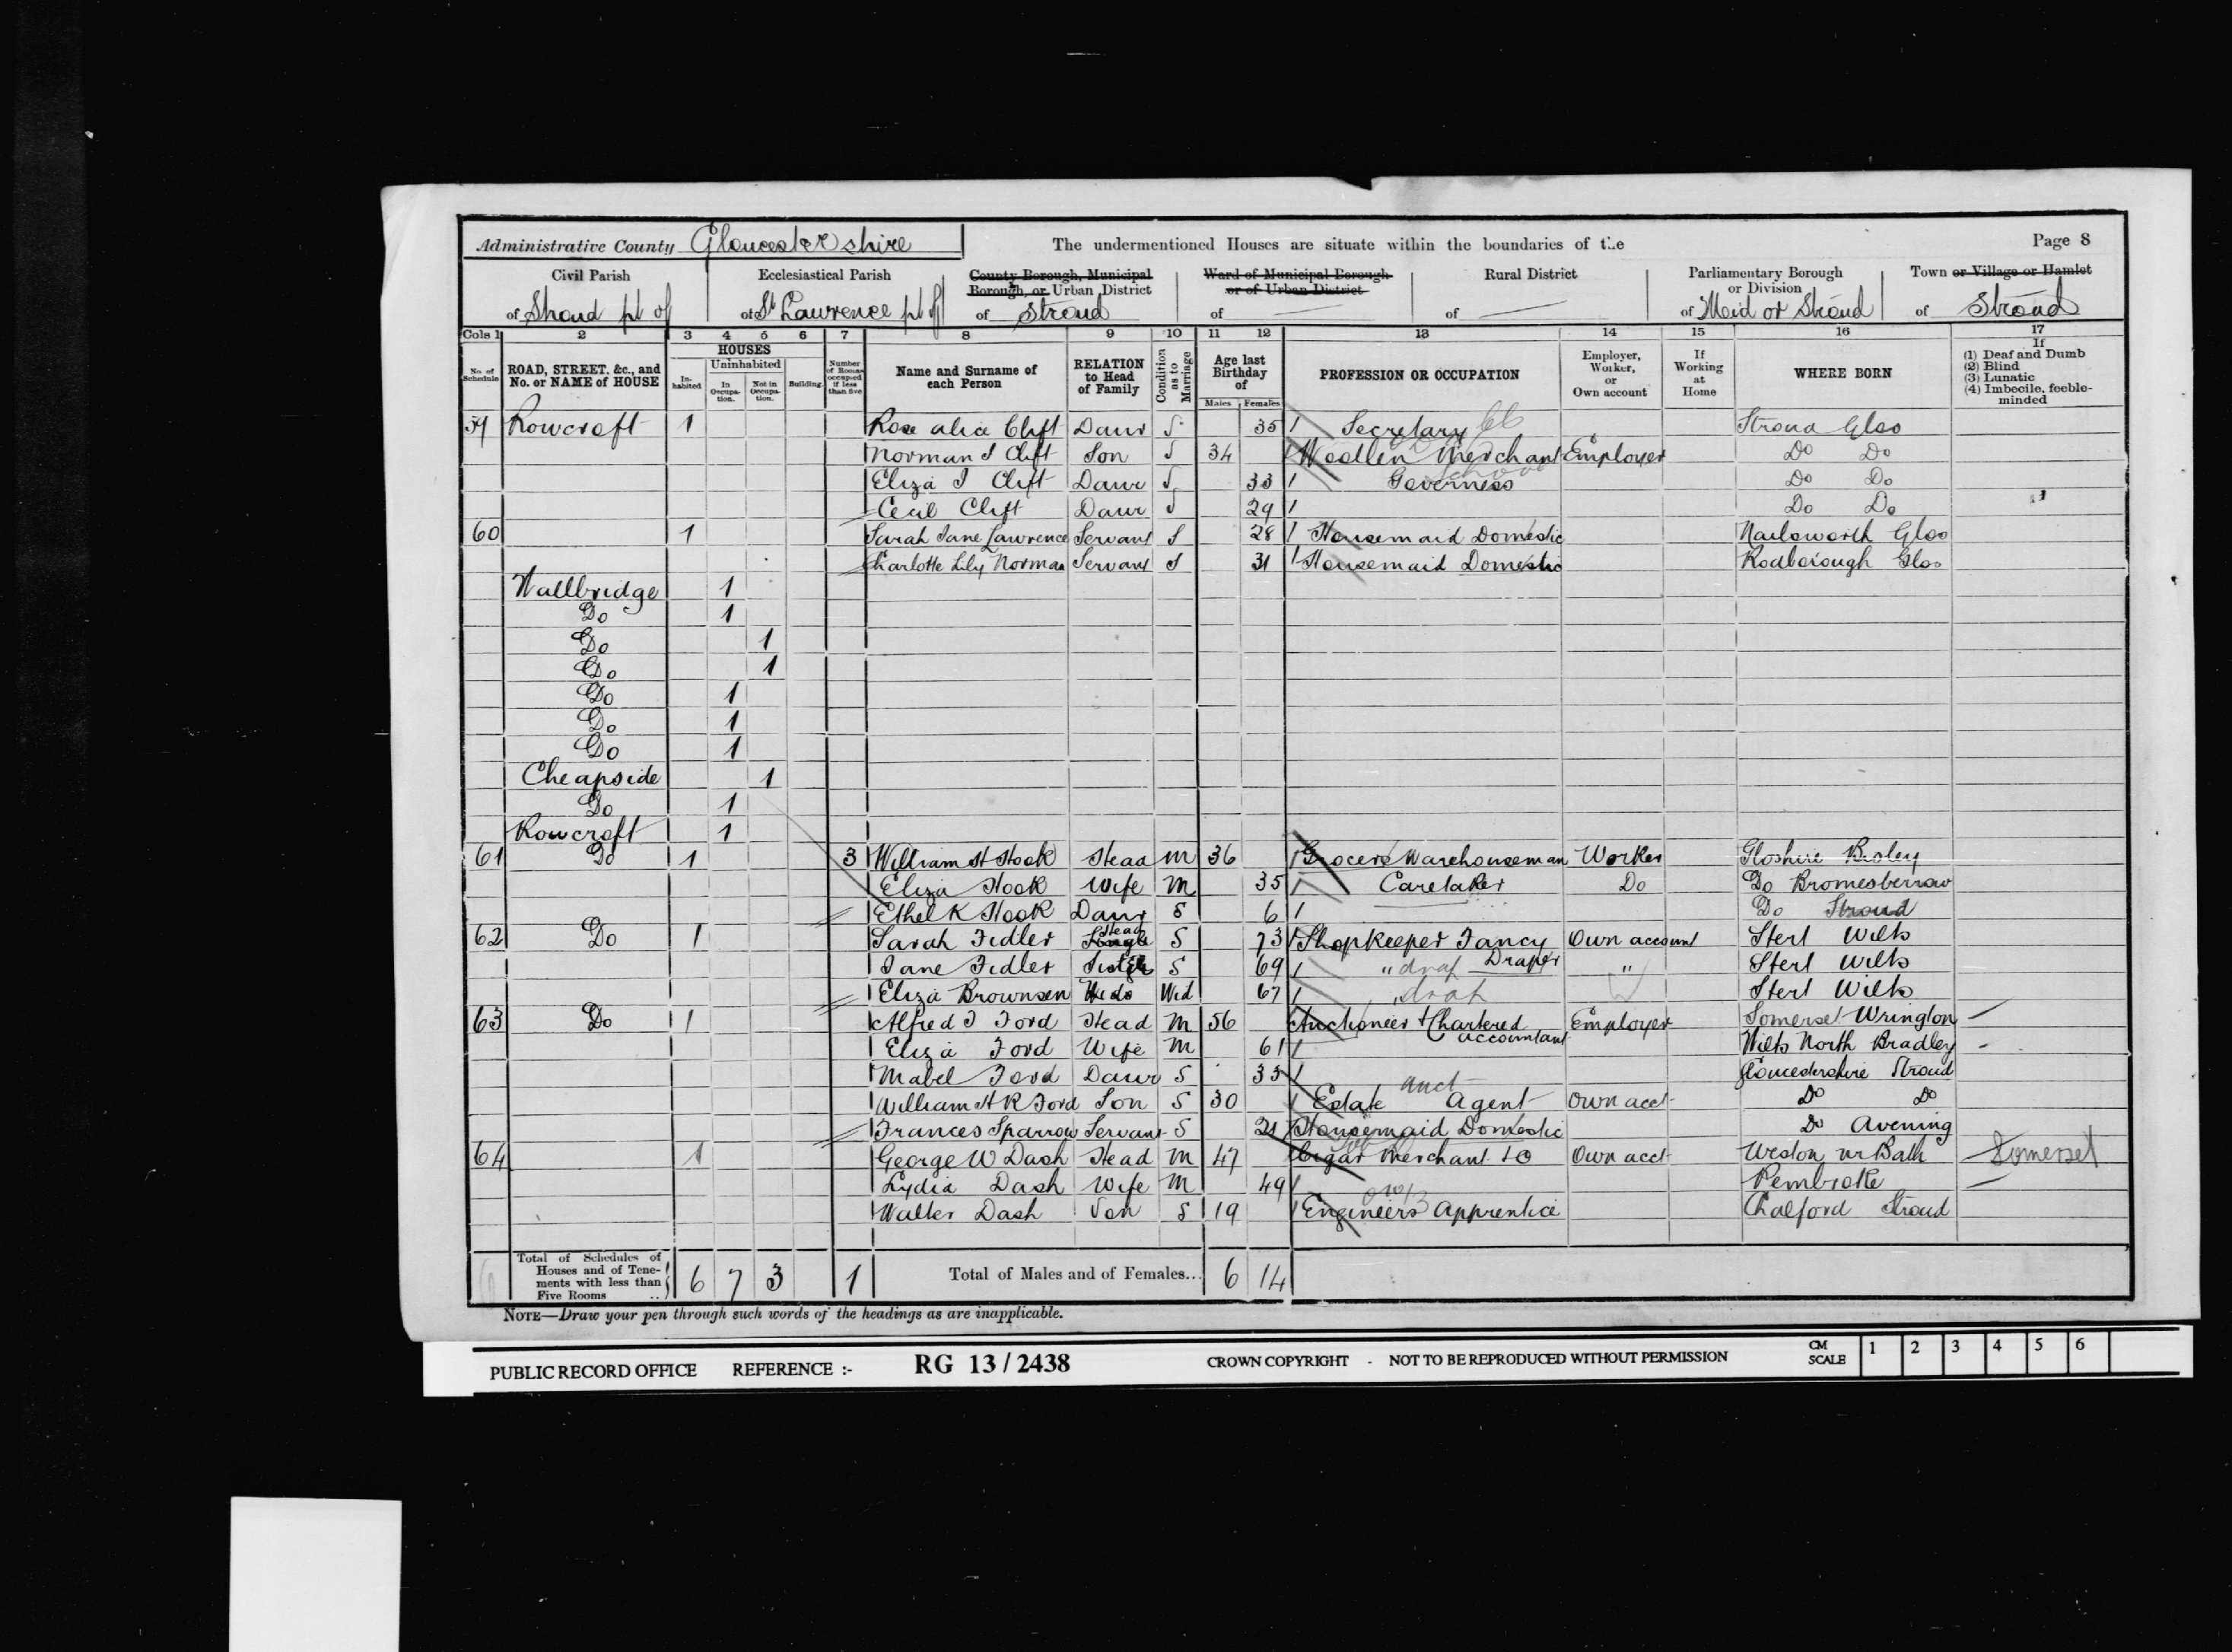 Administrative County Gloucestershire The undermentioned Houses are situate within the boundaries of the Page 8
Civil Parish Ecclesiastical Parish County Borough, Municipal Borough, or Urban District Ward of Municipal Borough or of Urban District Rural District Parliamentary Borough or Division Town or Village or Hamlet
of Stroud pt of of St Lawrence pt of of Stroud of of of Mid or Stroud of Stroud
Cols 1 2 3 4 5 6 7 8 9 10 11 12 13 14 15 16 17
No. of Schedule ROAD, STREET, &c., and No. or NAME of HOUSE HOUSES Inhabited Uninhabited In Occupation. Not in Occupation. Building. Number of Rooms occupied if less than five Name and Surname of each Person RELATION to Head of Family Condition as to Marriage Age last Birthday of Males Females PROFESSION OR OCCUPATION Employer, Worker, or Own account If Working at Home WHERE BORN If (1) Deaf and Dumb (2) Blind (3) Lunatic (4) Imbecile, feeble-minded
59 Rowcroft 1 Rose Alice Clift Daur S 35 Secretary Stroud Glos
Norman J Clift Son S 34 Woollen Merchant Employer Do Do
Eliza J Clift Daur S 33 Governess Do Do
Cecil Clift Daur S 29 Do Do
60 1 Sarah Jane Lawrence Servant S 28 Housemaid Domestic Nailsworth Glos
Charlotte Lily Norman Servant S 31 Housemaid Domestic Rodborough Glos
Wallbridge 1
Do 1
Do 1
Do 1
Do 1
Do 1
Do 1
Cheapside 1
Do 1
Rowcroft 1
61 Do 1 3 William H Hook Head M 36 Grocers Warehouseman Worker Gloshire Bisley
Eliza Hook Wife M 35 Caretaker Do Do Bromesberrow
Ethel K Hook Daur S 6 Do Stroud
62 Do 1 Sarah Fidler Head S 73 Shopkeeper Fancy Draper Own account Stert Wilts
Jane Fidler Sister S 69 " drap " Stert Wilts
Eliza Brownsen Wid 67 " drap Stert Wilts
63 Do 1 Alfred J Ford Head M 56 Auctioneer + Chartered accountant Employer Somerset Wrington
Eliza Ford Wife M 61 Wilts North Bradley
Mabel Ford Daur S 33 Gloucestershire Stroud
William H R Ford Son S 30 Estate auct Agent Own acct Do Do
Frances Sparrow Servant S 21 Housemaid Domestic Do Avening
64 1 George W Dash Head M 47 Cigar Merchant Own acct Weston nr Bath Somerset
Lydia Dash Wife M 49 Pembroke
Walter Dash Son S 19 Engineers Apprentice Chalford Stroud
Total of Schedules of Houses and of Tenements with less than Five Rooms .. 6 7 3 1 Total of Males and of Females... 6 14
NOTE—Draw your pen through such words of the headings as are inapplicable.
PUBLIC RECORD OFFICE REFERENCE :- RG 13 / 2438 CROWN COPYRIGHT - NOT TO BE REPRODUCED WITHOUT PERMISSION CM SCALE 1 2 3 4 5 6